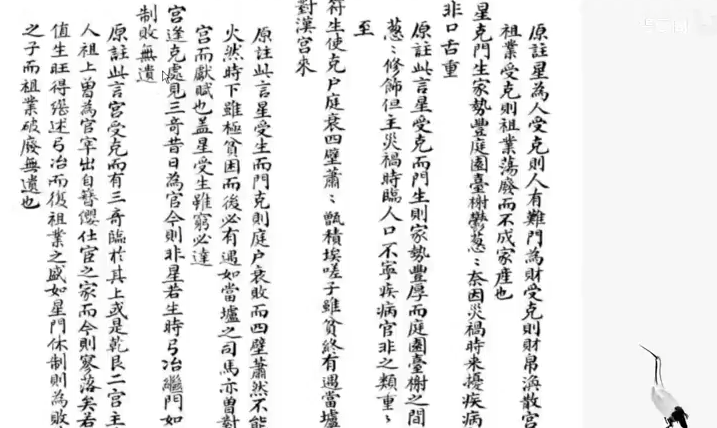 原註星為人受克則人有難門為財受克則財帛渙散宮
祖業受克則祖業蕩廢而不成家産也
星克門生家勢豐庭園臺榭鬱葱〻奈因災禍時来擾疾病
非口舌重
原註此言星受克而門生則家勢豐厚而庭園臺榭之間
葱〻修飾但主災禍時臨人口不寧疾病官非之類重〻
至
符生使克户庭衰四壁蕭〻甑積埃嗟子雖貧終有遇當壚
對漢宮來
原註此言星受生而門克則庭户衰敗而四壁蕭然不能
火然時下雖極貧困而後必有遇如當壚之司馬亦曾對
宮而獻賦也盖星受生雖窮必達
宮逢克處見三奇昔日為官今則非星若生時弓冶繼門如
制敗無遺
原註此言宮受克而有三奇臨於其上或是乾艮二宮主
人祖上曾為官宰出自簪纓仕宦之家而今則寥落矣若
值生旺得能述弓冶而復祖業之盛如星門休制則為敗
之子而祖業破廢無遺也